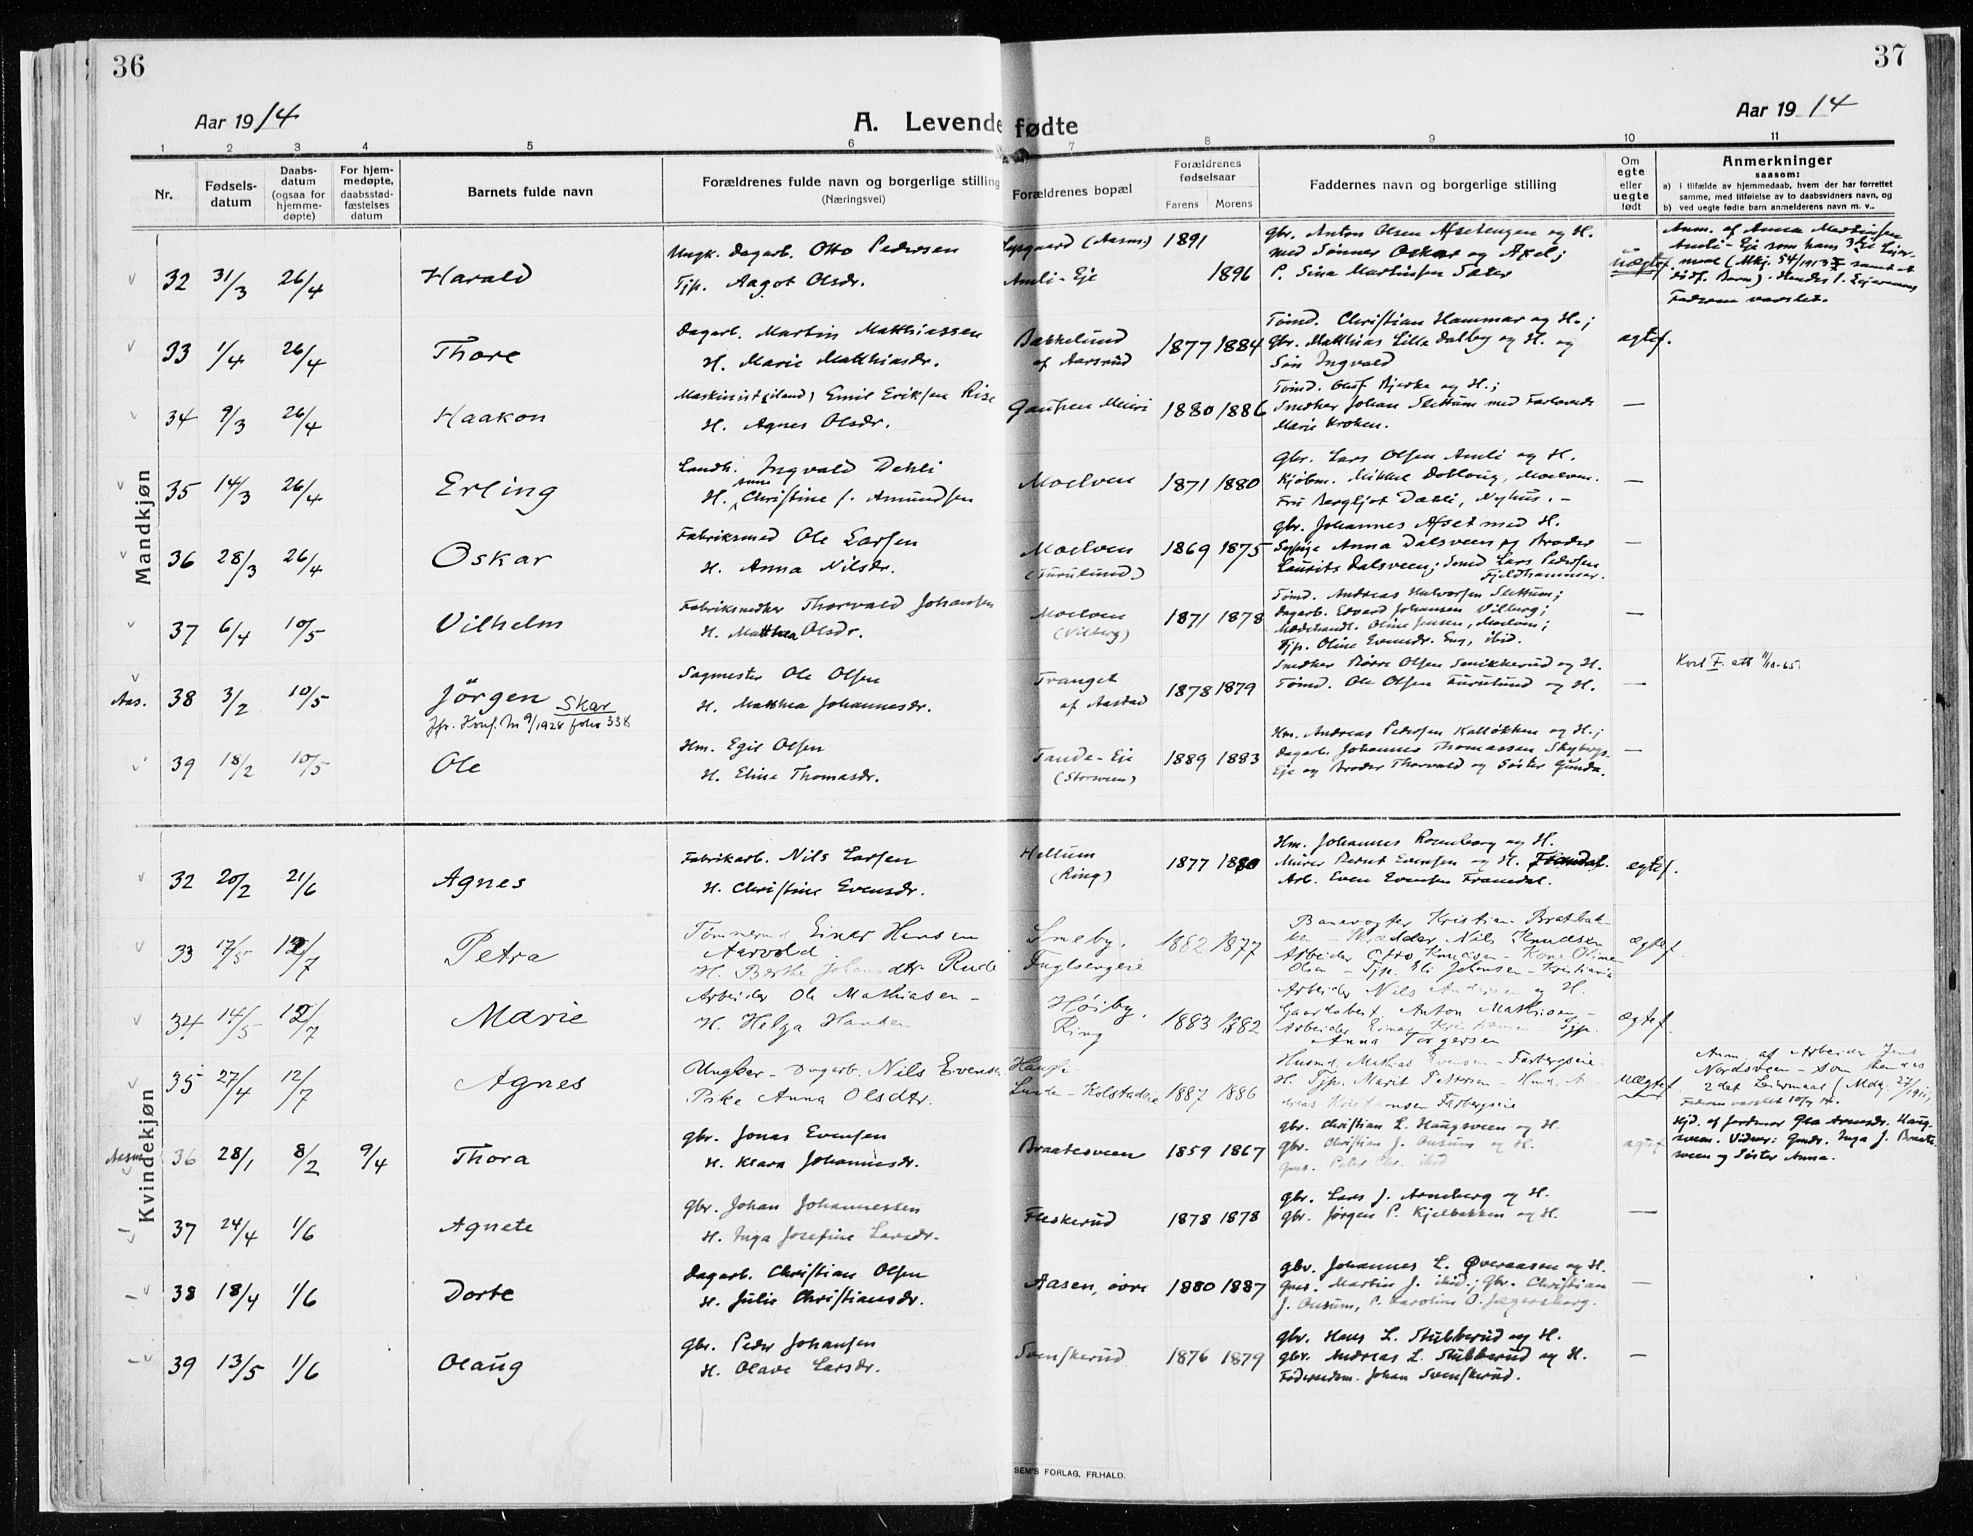 36
37
Aar 1914
A. Levende fødte
Aar 1914
1 2 3 4 5 6 7 8 9 10 11
Nr.
Fødsels-
datum
Daabs-
datum
(ogsaa for
hjemme-
døpte)
For hjem-
medøpte,
daabsstad-
fæstelses
datum
Barnets fulde navn
Forældrenes fulde navn og borgerlige stilling
(Næringsvei)
Forældrenes bopæl
Forældrenes
fødselsaar
Farens Morens
Faddernes navn og borgerlige stilling
Om
egte
eller
uegte
født
Anmerkninger
saasom:
a) i tilfælde av hjemmedaab, hvem der har forrettet
samme, med tilføielse av to daabsvidners navn, og
b) ved uegte fødte barn anmelderens navn m. v..
Mandkjøn
32 31/3 26/4 Harald
Ungk. dagarb. Otto Pedersen
Tjp. Aagot Olsdr.
(Aasm.) 1891
Amli-Eje 1896
gbr. Anton Olsen Afsetengen og H.
med Sønner Oskar og Axel;
P. Sina Martinsen Sæter
uægtef.
Anm. af Anna Martinsen
Amli-Eje som hans
(Mkj. 54/1913
Faderen varslet.
33 1/4 26/4 Thore
Dagarb. Martin Matthiassen
H. Marie Matthiasdr.
Bakkelund
af Aarsrud
1877 1884
Tømd. Christian Hammar og H.;
gbr. Matthias Lille Dalby og H. og
Søn Ingvald
ægtef.
34 9/3 26/4 Haakon
Maskinist (iland) Emil Eriksen Rise
H. Agnes Olsdr.
Gaupen Meieri
1880 1886
Tømd. Oluf Bjerke og H.;
Snedker Johan Slettum med Forlovede
Marie Kroken.
—
35 14/3 26/4 Erling
Landh. Ingvald Dehli
H. Christine f. Amundsen
Moelven
1871 1880
Gbr. Lars Olsen Amli og H.
Kjøbm. Mikkel Dobloug, Moelven.
Frk Bergljot Dæhli, Nyhus. –
—
36 28/3 26/4 Oskar
Fabriksmed Ole Larsen
H. Anna Nilsdr.
Moelven
(Furulund)
1869 1875
gbr. Johannes Afset med H.
Sypige Anna Dalsveen og Broder
Laurits Dalsveen; Smed Lars Pedersen
Fjeldhammer.
—
37 6/4 10/5 Vilhelm
Fabriksnedker Thorvald Johansen
H. Matthea Olsdr.
Moelven
(Vilberg)
1871 1878
Tømd. Andreas Halvorsen Slettum;
dagarb. Edvard Johansen Vilberg;
Modehandl. Oline Jensen, Moelven;
Tjp. Oline Evensdr. Eng, ibid.
—
Aas. 38 3/2 10/5 Jörgen Skar
Jfr. Konf. No 9/1928 folio 338
Sagmester Ole Olsen
H. Matthea Johannesdr.
Tranget
af Aastad
1878 1879
Snedker Børre Olsen Snikkerud og H.
Tømd. Ole Olsen Furulund og H.
—
Kvit F. att 11/10-65
39 18/2 10/5 Ole
Hm. Egil Olsen
H. Eline Thomasdr.
Tande-Eje
(Storsveen)
1889 1883
Hm. Andreas Pedersen Kalløkken og H.;
dagarb. Johannes Thomassen Skybergs-
Eje og Broder Thorvald og Søster Gunda.
—
Kvindekjøn
32 20/2 21/6 Agnes
Fabrikarb. Nils Larsen
H. Christine Evensdr.
Hellum
(Ring)
1877 1880
Hm. Johannes Rosenborg og H.
Murer Bernt Evensen og H.
Arb. Even Evensen Framdal.
ægtef.
33 17/5 12/7 Petra
Tømmermd Einar Hansen
Aarvold
H. Berthe Johansdtr Rude
Smeby.
Fuglsengeie
1882 1877
Banevogter Kristian Bratbak-
ken – Skrædder Nils Knudsen
Arbeider Otto Knudsen – Kone Oline
Olsen – Tjp. Eli Johnsen – Kristiania
ægtef.
34 14/5 12/7 Marie
Arbeider Ole Mathiasen –
H. Helga Hansen
Høiby.
Ring
1883 1882
Arbeider Nils Andersen og H.
Gaardsbest. Anton Mathisen –
Arbeider Einar Kristiansen Tjp.
Anna Torgersen
ægtef.
35 27/4 12/7 Agnes
Ungkar – Dagarb. Nils Evensen
Pike Anna Olsdtr.
Haugs-
Lunde – Kolstadeie
1887 1886
Husmd. Mathias Evensen – Farbergseie
H. Tjp. Marit Pettersen – Hmd. An-
dreas Kristiansen Farbergseie
uægtef
Anm. af Arbeider Jens
Nordsveen – som hendes
2det Leiermaal (Mdg. 27/1911)
Faderen varslet 10/7 14.
Aasm. 36 28/1 8/2 9/4 Thora
gbr. Jonas Evensen
H. Klara Johannesdr.
Braatesveen
1859 1867
gbr. Christian L. Haugsveen og H.
gbr. Christian J. Onsum og H.
gms. Peter Chr. ibid
ægtef.
Hjd. af Jordmor Gea Arnesdr. Haug-
sveen. Vidner: Gmdr. Inga J. Braate-
sveen og Søster Anna.
37 24/4 1/6 Agnete
gbr. Johan Johannessen
H. Inga Josefine Larsdr.
Fleskerud
1878 1878
gbr. Lars J. Arneberg og H.
gbr. Jørgen P. Kjelbakken og H.
—
38 18/4 1/6 Dorte
Dagarb. Christian Olsen
H. Julie Christiansdr.
Aasen, övre
1880 1887
gbr. Johannes L. Øveraasen og H.
gms. Martin J. ibid.; Gbr. Christian
J. Onsum, P. Karoline O. Jægersberg.
—
39 13/5 1/6 Olaug
gbr. Peder Johansen
H. Olave Larsdr.
Svenskerud
1876 1879
gbr. Hans L. Stubberud og H.
gbr. Andreas L. Stubberud og H.
Føderaadsm. Johan Svenskerud.
—
SEM'S FORLAG, FR.HALD.